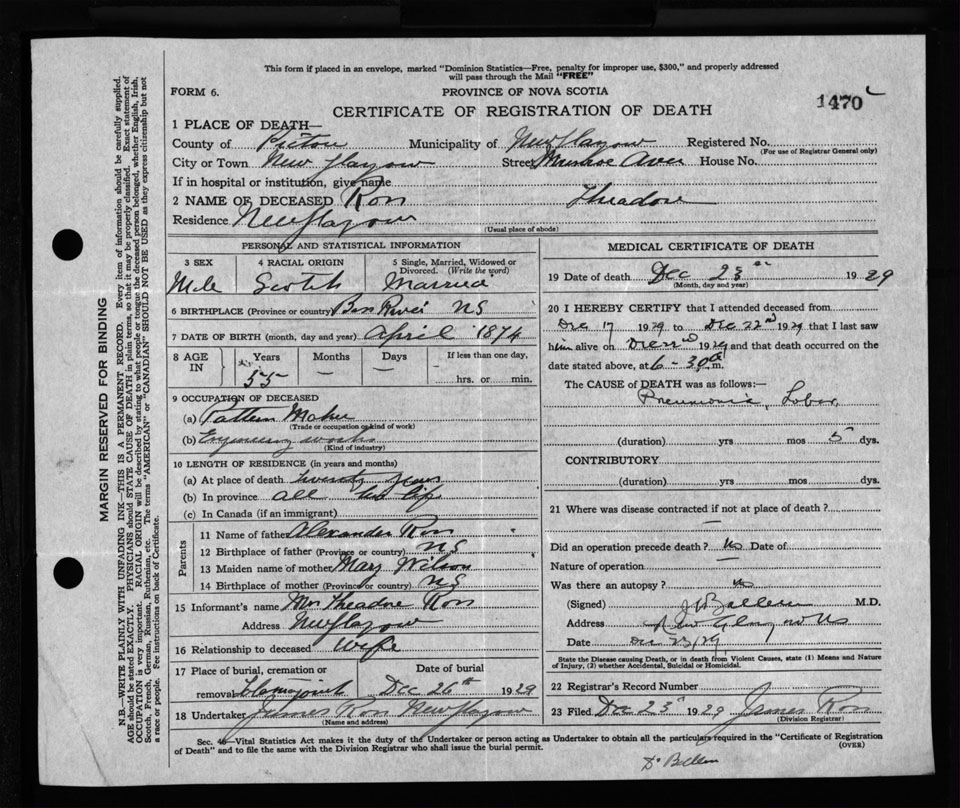 This form if placed in an envelope, marked "Dominion Statistics—Free, penalty for improper use, $300," and properly addressed
will pass through the Mail "FREE"
FORM 6.
PROVINCE OF NOVA SCOTIA
1470
CERTIFICATE OF REGISTRATION OF DEATH
1 PLACE OF DEATH—
County of Pictou Municipality of New Glasgow Registered No.
(For use of Registrar General only)
City or Town New Glasgow Street Munroe Aven House No.
If in hospital or institution, give name
2 NAME OF DECEASED Ross Theadore
Residence New Glasgow
(Usual place of abode)
PERSONAL AND STATISTICAL INFORMATION
3 SEX 4 RACIAL ORIGIN 5 Single, Married, Widowed or
Divorced. (Write the word)
Male Scotch Married
6 BIRTHPLACE (Province or country) River NS
7 DATE OF BIRTH (month, day and year) April 1874
8 AGE IN Years Months Days If less than one day,
55 — — hrs. or min.
9 OCCUPATION OF DECEASED
(a) Pattern Maker
(Trade or occupation or kind of work)
(b) Engineering works
(Kind of industry)
10 LENGTH OF RESIDENCE (in years and months)
(a) At place of death twenty years
(b) In province all his life
(c) In Canada (if an immigrant)
Parents
11 Name of father Alexander Ross
12 Birthplace of father (Province or country) NS
13 Maiden name of mother Mary Wilson
14 Birthplace of mother (Province or country) NS
15 Informant's name Mrs Theadore Ross
Address New Glasgow
16 Relationship to deceased Wife
17 Place of burial, cremation or Date of burial
removal Dec 26th 1929
18 Undertaker James Ross New Glasgow
(Name and address)
MEDICAL CERTIFICATE OF DEATH
19 Date of death Dec 23 1929
(Month, day and year)
20 I HEREBY CERTIFY that I attended deceased from
Dec 17 1929 to Dec 22nd 1929 that I last saw
him alive on 1929 and that death occurred on the
date stated above, at 6-30 a m.
The CAUSE of DEATH was as follows:—
Pneumonia, Lobar
(duration) yrs mos 5 dys.
CONTRIBUTORY
(duration) yrs mos dys.
21 Where was disease contracted if not at place of death?
—
Did an operation precede death? No Date of
Nature of operation —
Was there an autopsy? No
(Signed) M.D.
Address New Glasgow NS
Date Dec 23/29
State the Disease causing Death, or in death from Violent Causes, state (1) Means and Nature
of Injury, (2) whether Accidental, Suicidal or Homicidal.
22 Registrar's Record Number
23 Filed Dec 23 1929 James Ross
(Division Registrar)
Sec. 4—Vital Statistics Act makes it the duty of the Undertaker or person acting as Undertaker to obtain all the particulars required in the "Certificate of Registration
of Death" and to file the same with the Division Registrar who shall issue the burial permit.
(OVER)
MARGIN RESERVED FOR BINDING
N.B.—WRITE PLAINLY WITH UNFADING INK—THIS IS A PERMANENT RECORD. Every item of information should be carefully supplied.
AGE should be stated EXACTLY. PHYSICIANS should STATE CAUSE OF DEATH in plain terms, so that it may be properly classified. Exact statement of
OCCUPATION is very important. RACIAL ORIGIN will be described by stating to what people or tongue the deceased person belonged, whether English, Irish,
Scotch, French, German, Russian, Ruthenian, etc. The terms "AMERICAN" or "CANADIAN" SHOULD NOT BE USED as they express citizenship but not
a race or people. See instructions on back of Certificate.